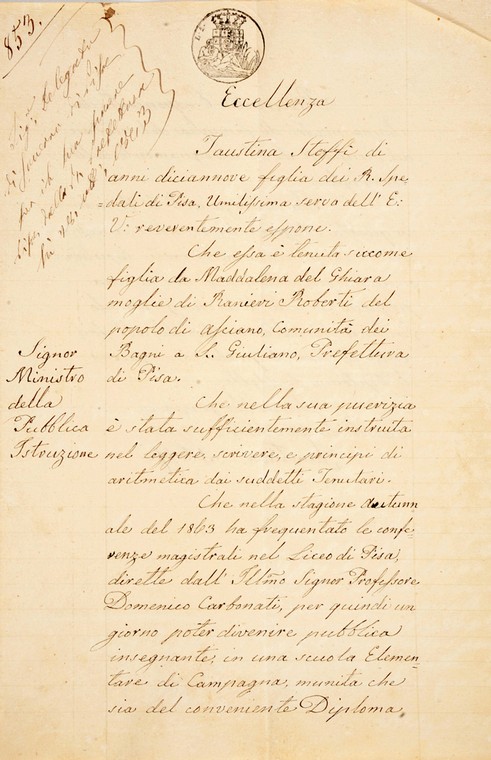 853.
Eccellenza
Faustina Stoffi di
anni diciannove figlia dei R. Spe-
dali di Pisa, Umilissima serva dell' E:
V: reverentemente espone.
Che essa è tenuta siccome
figlia da Maddalena del Ghiara
moglie di Ranieri Roberti del
popolo di Asciano, Comunità dei
Bagni a S. Giuliano, Prefettura
di Pisa.
Che nella sua puerizia
è stata sufficientemente instruita
nel leggere, scrivere, e principi di
aritmetica dai suddetti Tenutari.
Che nella stagione autunn
ale del 1863 ha frequentato le confe
renze magistrali nel Liceo di Pisa,
dirette dall' Illmo Signor Professore
Domenico Carbonati, per quindi un
giorno poter divenire pubblica
insegnante, in una scuola Elemen-
tare di Campagna, munita che
sia del conveniente Diploma,
Signor
Ministro
della
Pubblica
Istruzione